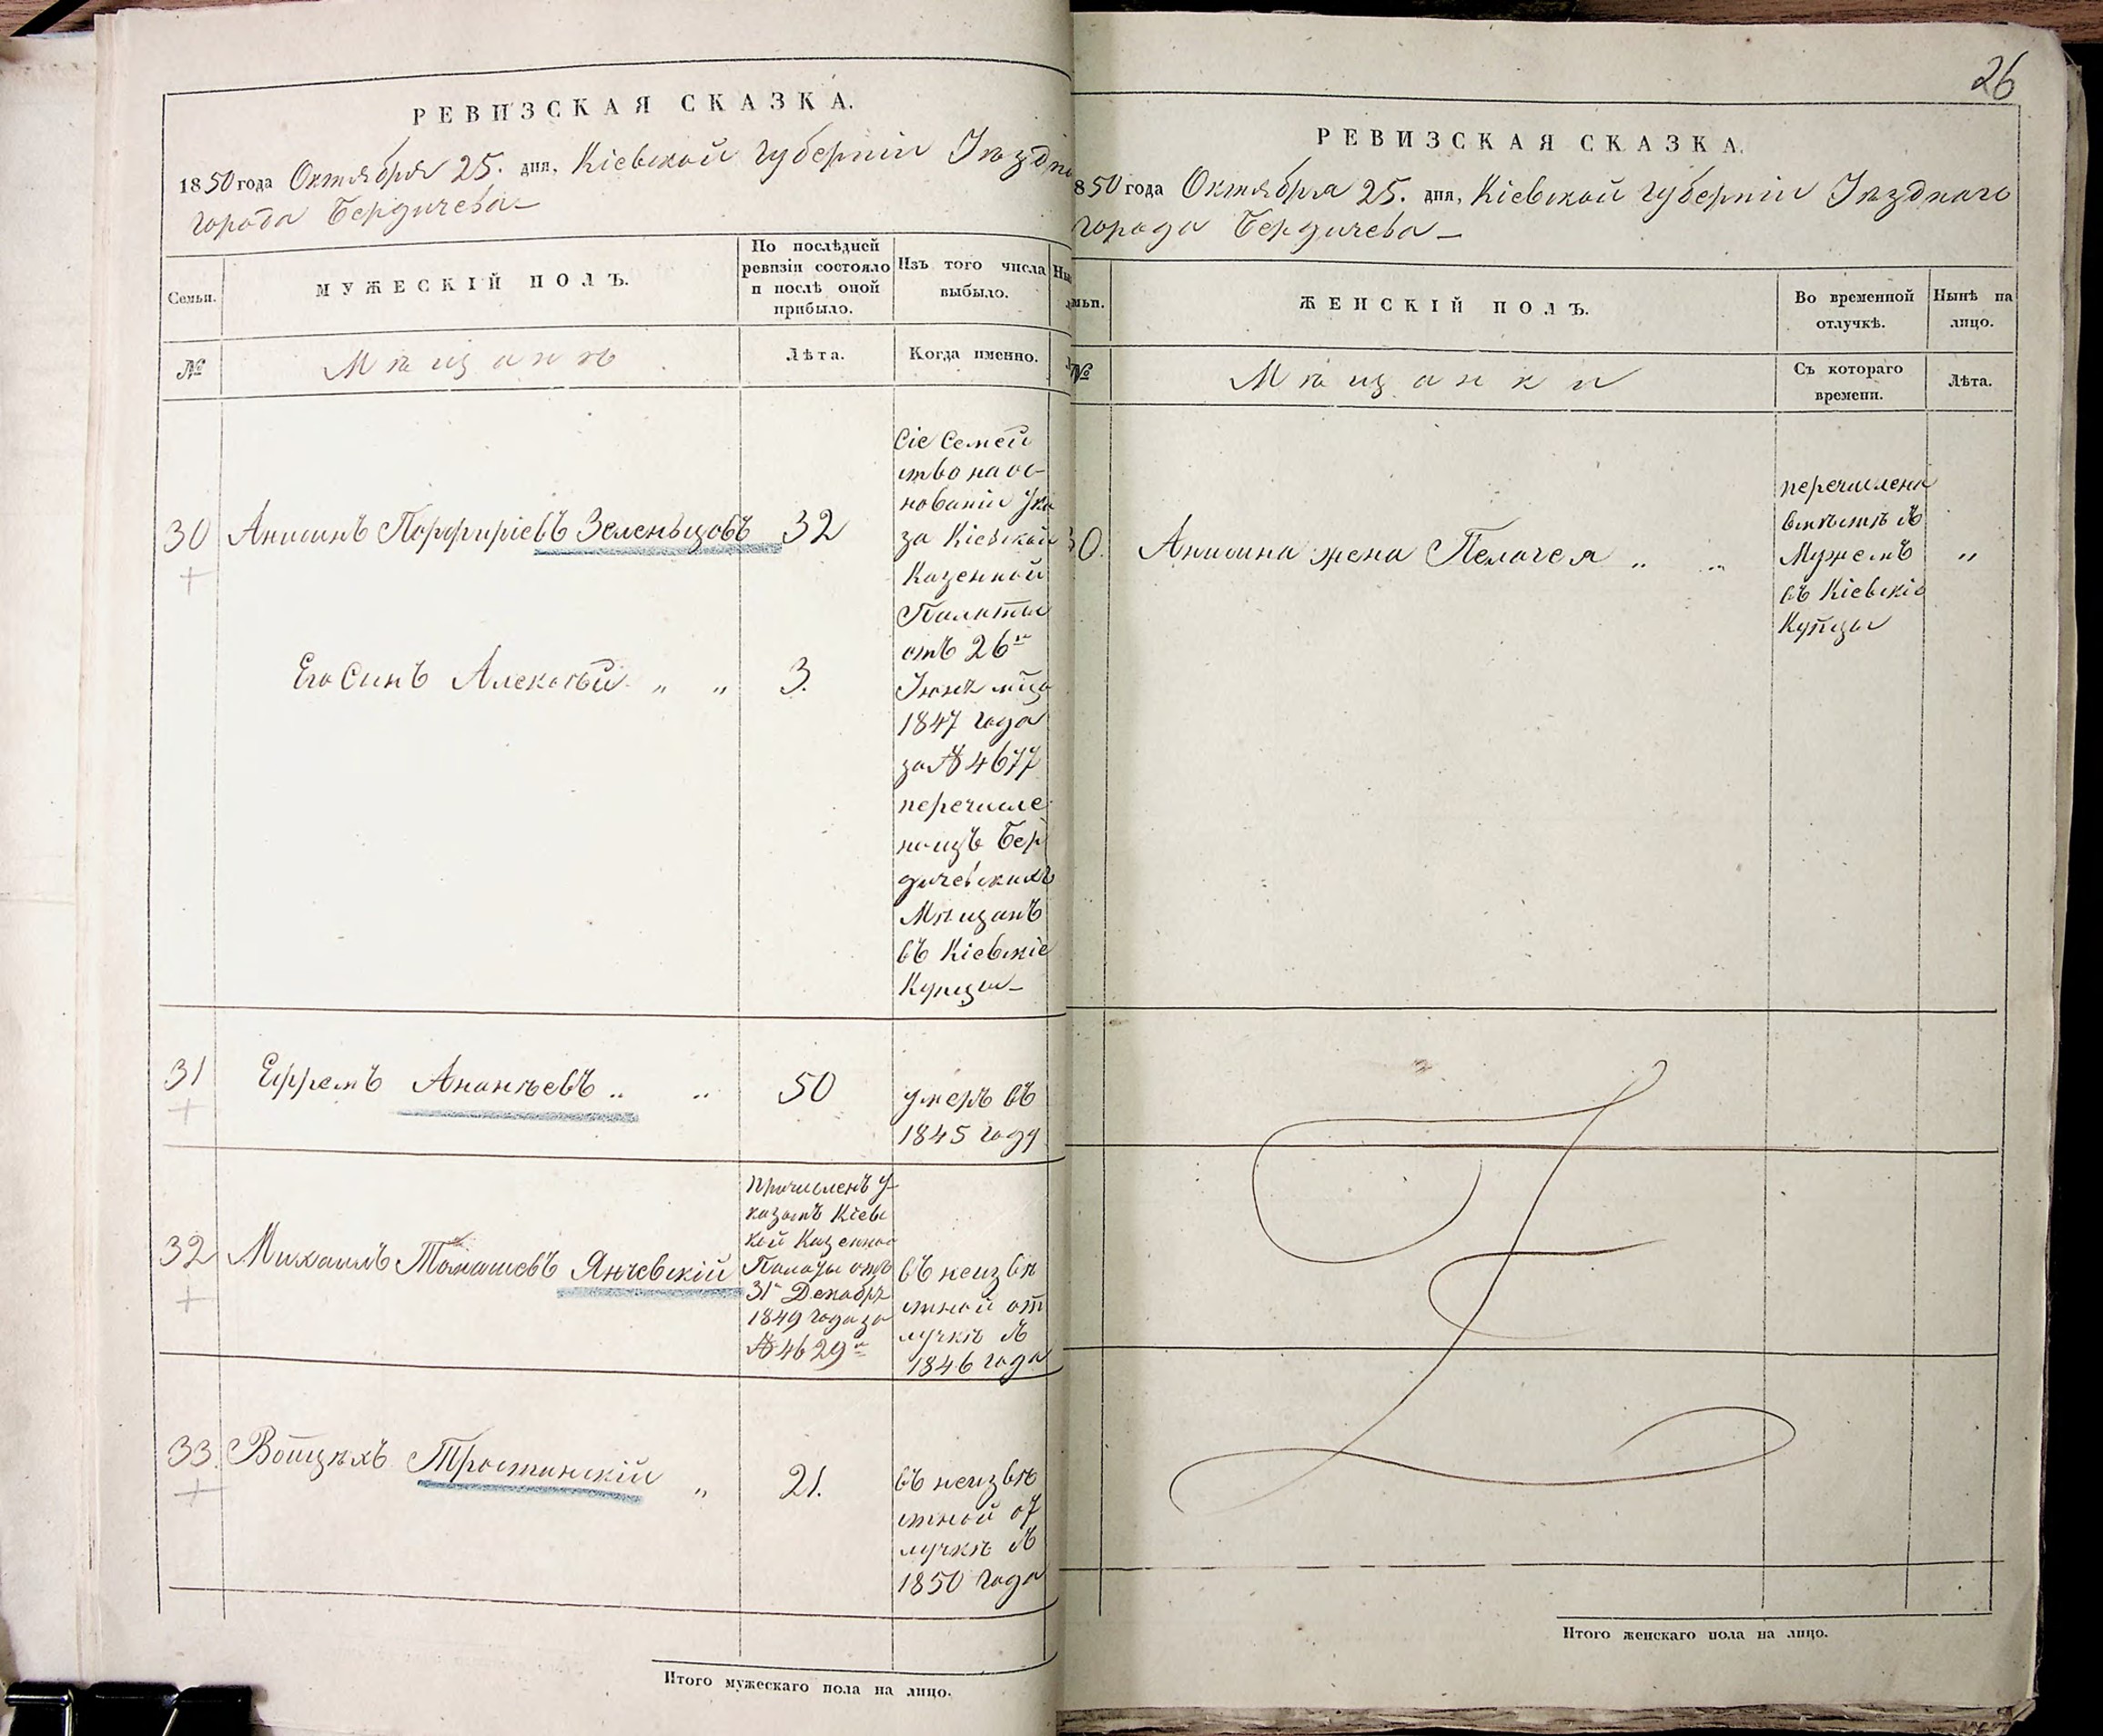 РЕВИЗСКАЯ СКАЗКА.
1850 года Октября 25. дня, Кіевской Губерніи Уѣздна
города Бердичева
Семьи.
МУЖЕСКІЙ ПОЛЪ.
По послѣдней
ревизіи состояло
и послѣ оной
прибыло.
Изъ того числа
выбыло.
№
Мѣщанъ
Лѣта.
Когда именно.
30
Анисимъ Порфиріевъ Зеленьцовъ
32
Его Сынъ Алексѣй " "
3.
Сіе Семей
ство на ос-
нованіи Ука
за Кіевской
Казенной
Палаты
отъ 26го
Іюня мца
1847 года
за № 4677
перечисле
но изъ Бер
дичевскихъ
Мѣщанъ
въ Кіевскіе
Купцы
31
Ефремъ Ананьевъ " "
50
умеръ въ
1845 году
32
Михаилъ Томашевъ Янчевскій
причисленъ у-
казомъ Кіевс
кой Казенной
Палаты отъ
31го Декабря
1849 года за
№ 4629м
въ неизвѣ
стной от
лучкѣ съ
1846 года
33.
Войцѣхъ Тростинскій "
21.
въ неизвѣ
стной от
лучкѣ съ
1850 года
Итого мужескаго пола на лицо.
26
РЕВИЗСКАЯ СКАЗКА.
850 года Октября 25. дня, Кіевской Губерніи Уѣзднаго
города Бердичева
мьи.
ЖЕНСКІЙ ПОЛЪ.
Во временной
отлучкѣ.
Нынѣ на
лицо.
№
Мѣщанки
Съ котораго
времени.
Лѣта.
30.
Анисима жена Пелагея " "
перечислена
вмѣстѣ съ
Мужемъ
въ Кіевскіе
Купцы
"
Итого женскаго пола на лицо.